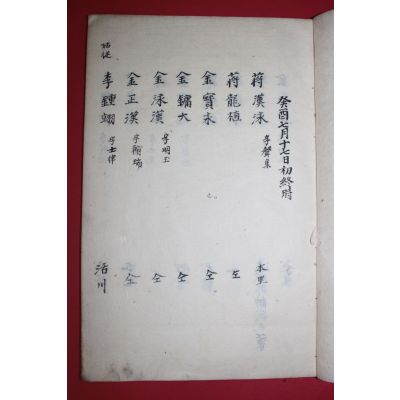 癸酉七月十七日初終時
蔣漢泳 字聲集 本里
蔣龍植 仝
金寶永 仝
金鏞大 字明玉 仝
金泳漢 仝
金正漢 字顯瑞 仝
姑從 李鍾翊 字士律 活川